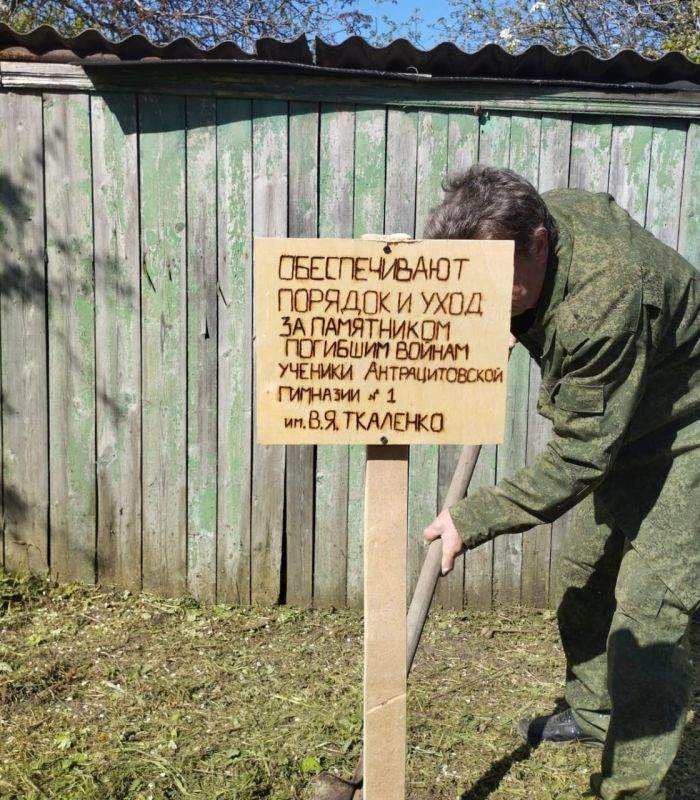 ОБЕСПЕЧИВАЮТ
ПОРЯДОК И УХОД
ЗА ПАМЯТНИКОМ
ПОГИБШИМ ВОЙНАМ
УЧЕНИКИ АНТРАЦИТОВСКОЙ
ГИМНАЗИИ № 1
им. В.Я. ТКАЛЕНКО